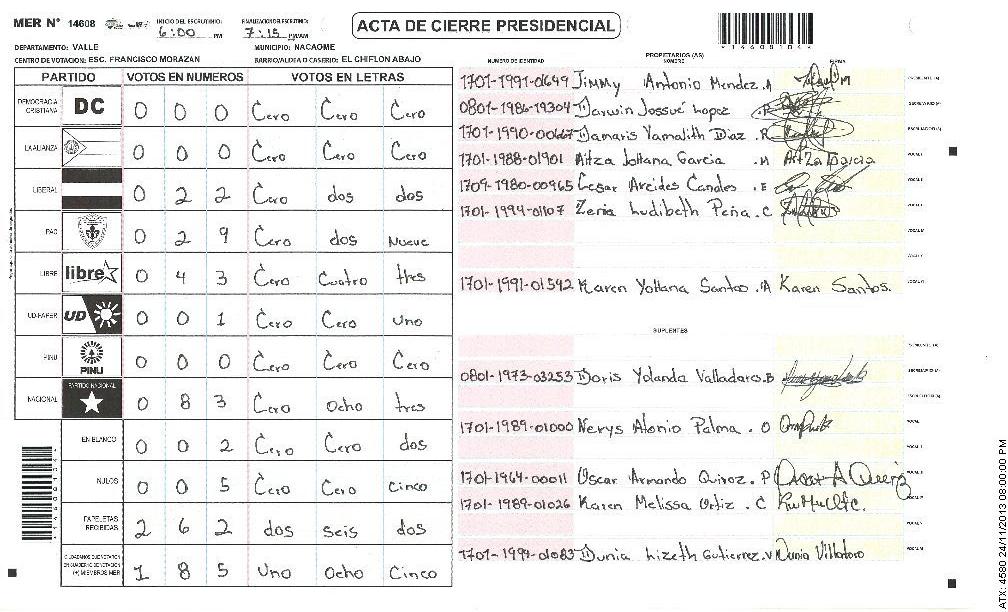 MER N° 14608 INICIO DEL ESCRUTINIO: 6:00 PM FINALIZACION ESCRUTINIO: 7:15 PM/AM ACTA DE CIERRE PRESIDENCIAL
DEPARTAMENTO: VALLE MUNICIPIO: NACAOME
CENTRO DE VOTACION: ESC. FRANCISCO MORAZAN BARRIO/ALDEA O CASERIO: EL CHIFLON ABAJO
PARTIDO VOTOS EN NUMEROS VOTOS EN LETRAS
DEMOCRACIA CRISTIANA DC 0 0 0 Cero Cero Cero
LA ALIANZA 0 0 0 Cero Cero Cero
LIBERAL 0 2 2 Cero dos dos
PAC 0 2 9 Cero dos Nueve
LIBRE libre 0 4 3 Cero Cuatro tres
UD-FAPER UD 0 0 1 Cero Cero Uno
PINU PINU 0 0 0 Cero Cero Cero
NACIONAL PARTIDO NACIONAL 0 8 3 Cero Ocho tres
EN BLANCO 0 0 2 Cero Cero dos
NULOS 0 0 5 Cero Cero Cinco
PAPELETAS RECIBIDAS 2 6 2 dos seis dos
1 8 5 Uno Ocho Cinco
PROPIETARIOS (AS)
NUMERO DE IDENTIDAD NOMBRE FIRMA
1701-1991-01649 Jimmy Antonio Mendez. A
0801-1986-19304 Darwin Jossué Lopez .R
1701-1990-00667 Damaris Yamalith Diaz .R
1701-1988-01901 Aitza Johana Garcia .M Aitza Garcia
1709-1980-00965 Cesar Arcides Canales .E
1701-1994-01107 Zenia Ludibeth Peña. C
1701-1991-01542 Karen Yohana Santos .A Karen Santos.
SUPLENTES
0801-1973-03253 Doris Yolanda Valladares.B
1701-1989-01000 Nerys Atonio Palma . O
1701-1964-00011 Oscar Armando Quiroz. P Oscar A Quiroz
1701-1989-01026 Karen Melissa Ortiz . C
1701-1994-01083 Dunia Lizeth Gutierrez.V Dunia Villatoro
ATX: 4580 24/11/2013 08:00:00 PM